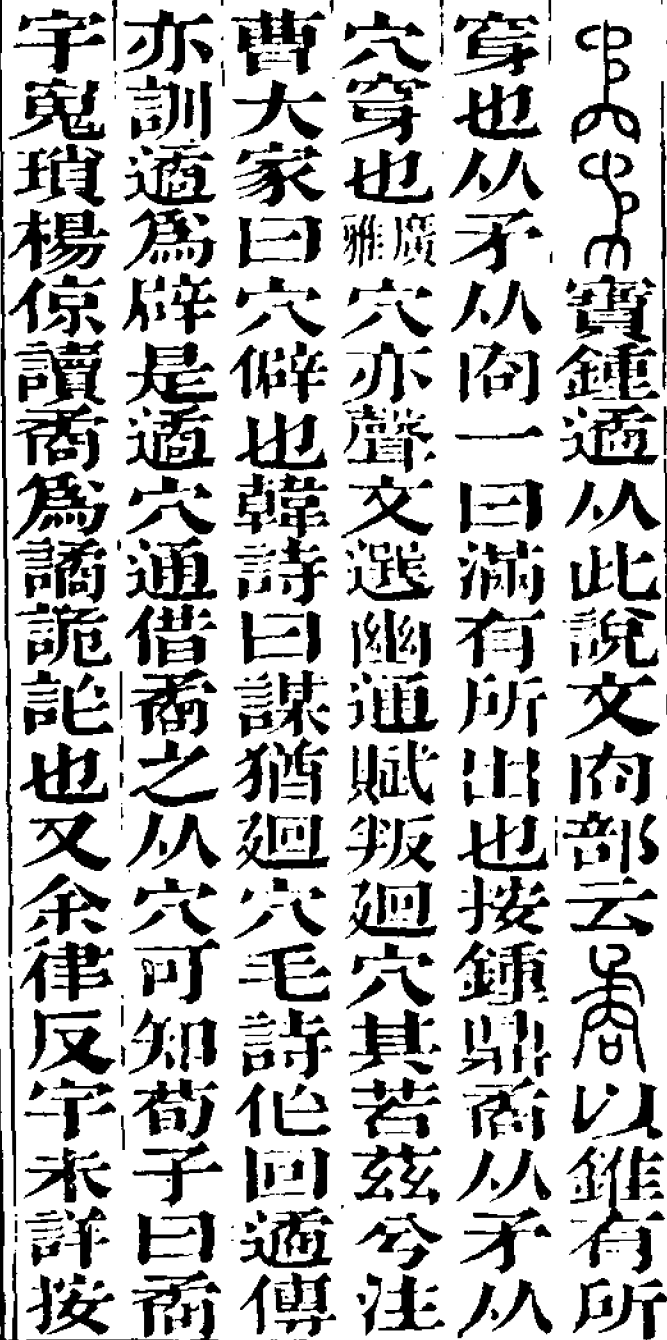 寶鍾遹从此說文㕯部云矞以錐有所
穿也从矛从㕯一曰滿有所出也按鍾鼎矞从矛从
穴穿也廣雅穴亦聲文選幽通賦叛廻穴其若茲兮注
曹大家曰穴僻也韓詩曰謀猶廻穴毛詩作回遹傳
亦訓遹爲辟是遹穴通借矞之从穴可知荀子曰矞
宇嵬瑣楊倞讀矞爲譎詭詑也又余律反宇未詳按